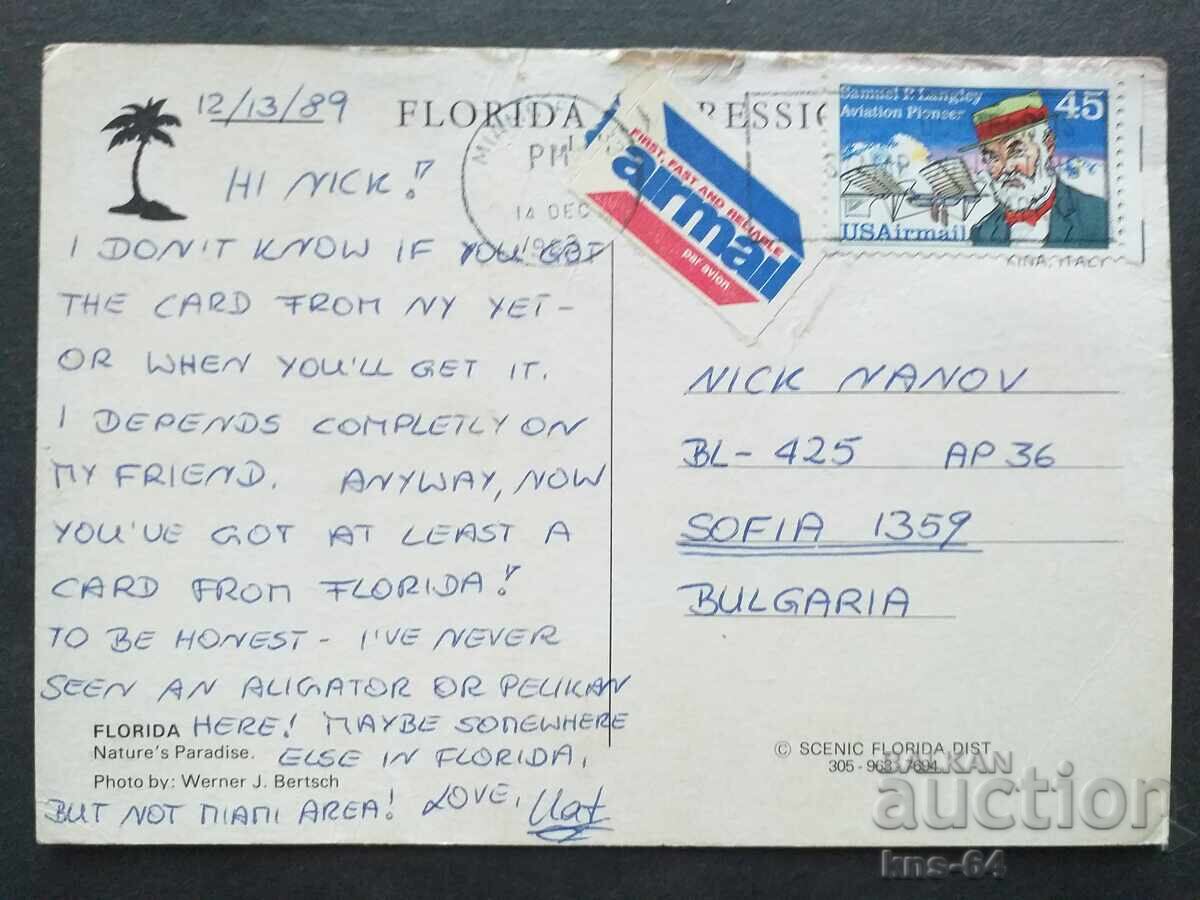 12/13/89
FLORIDA
HI NICK!
I DON'T KNOW IF YOU GOT
THE CARD FROM NY YET -
OR WHEN YOU'LL GET IT.
I DEPENDS COMPLETLY ON
MY FRIEND. ANYWAY, NOW
YOU'VE GOT AT LEAST A
CARD FROM FLORIDA!
TO BE HONEST - I'VE NEVER
SEEN AN ALIGATOR OR PELIKAN
HERE! MAYBE SOMEWHERE
ELSE IN FLORIDA,
BUT NOT MIAMI AREA! LOVE,
FLORIDA
Nature's Paradise.
Photo by: Werner J. Bertsch
PM
14 DEC
FIRST, FAST AND RELIABLE
airmail
par avion
Samuel P. Langley
Aviation Pioneer
45
USAirmail
NICK NANOV
BL- 425 AP 36
SOFIA 1359
BULGARIA
© SCENIC FLORIDA DIST
305-963-7694
BALKAN
auction
kns-64